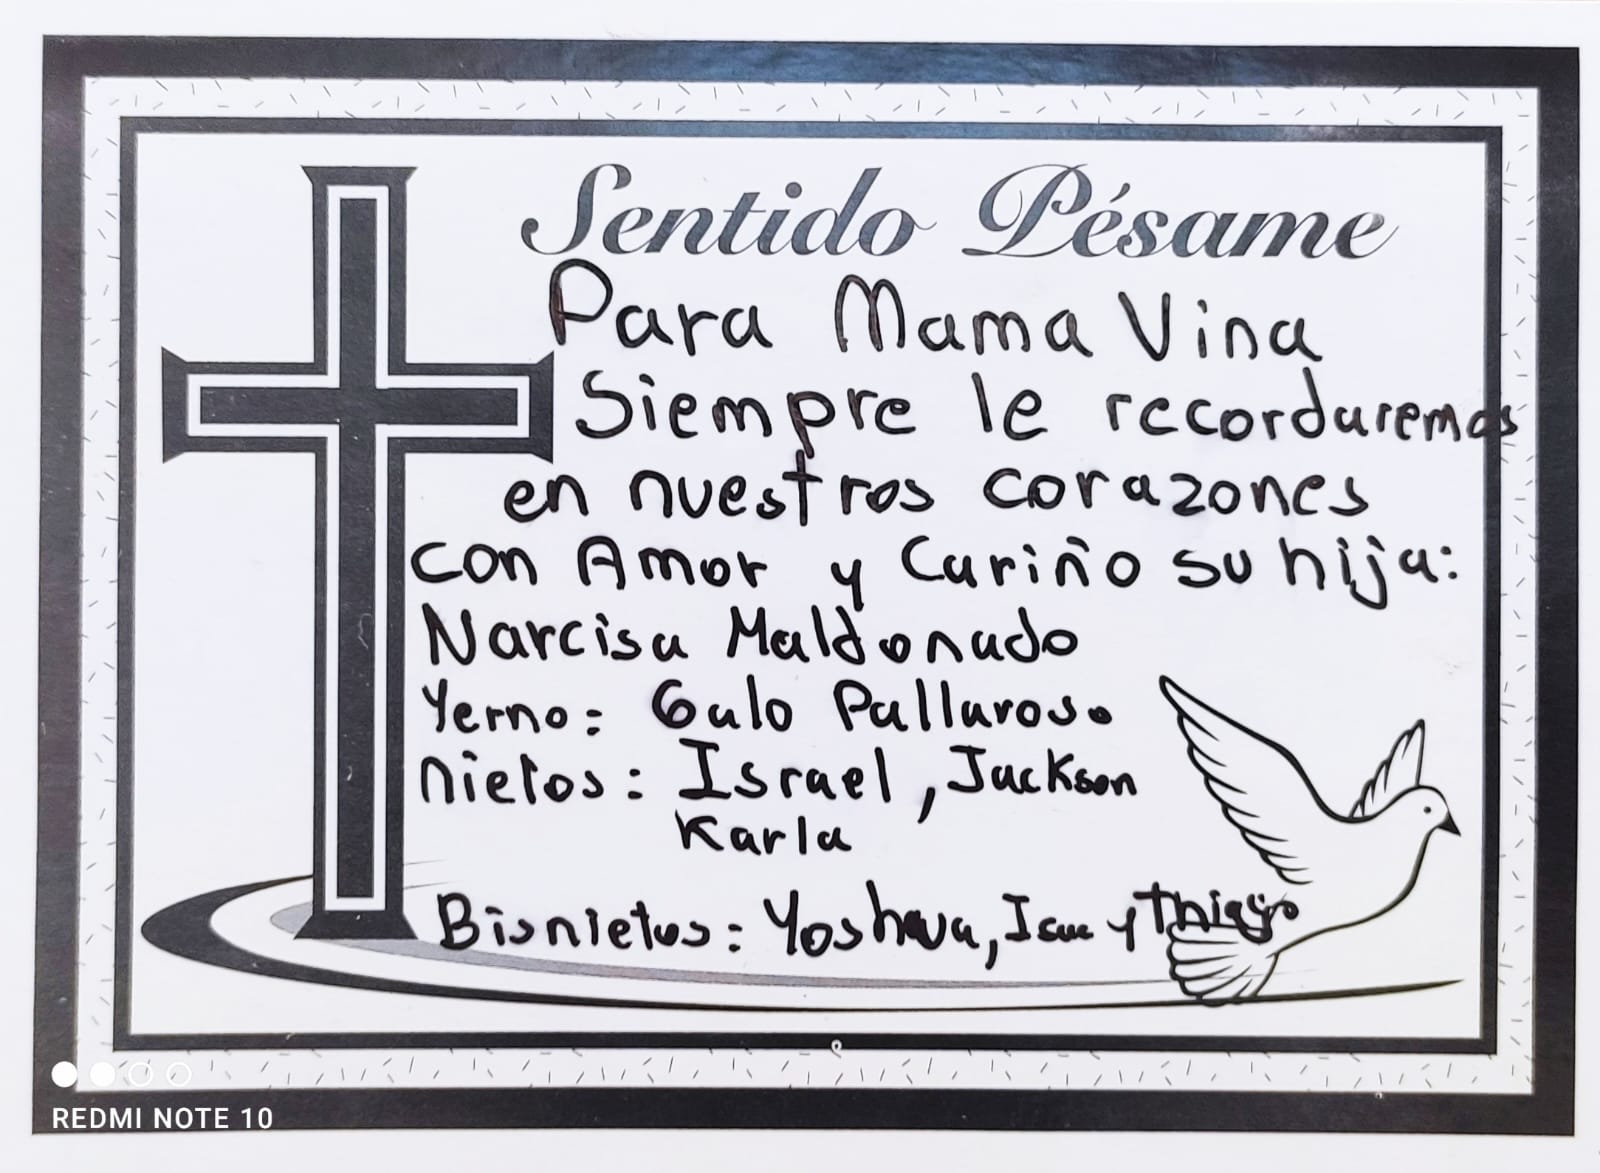 Sentido Pésame
Para Mama Vina
Siempre le recordaremos
en nuestros corazones
con Amor y Cariño su hija:
Narcisa Maldonado
Yerno: Galo Pallaroso
Nietos: Israel, Jackson
Karla
Bisnietos: Yoshua, Isac y Thiago
REDMI NOTE 10